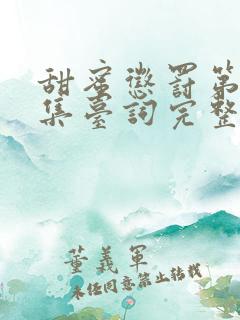 甜蜜懲罰第
集臺詞完整
董義軍
未經同意禁止轉載